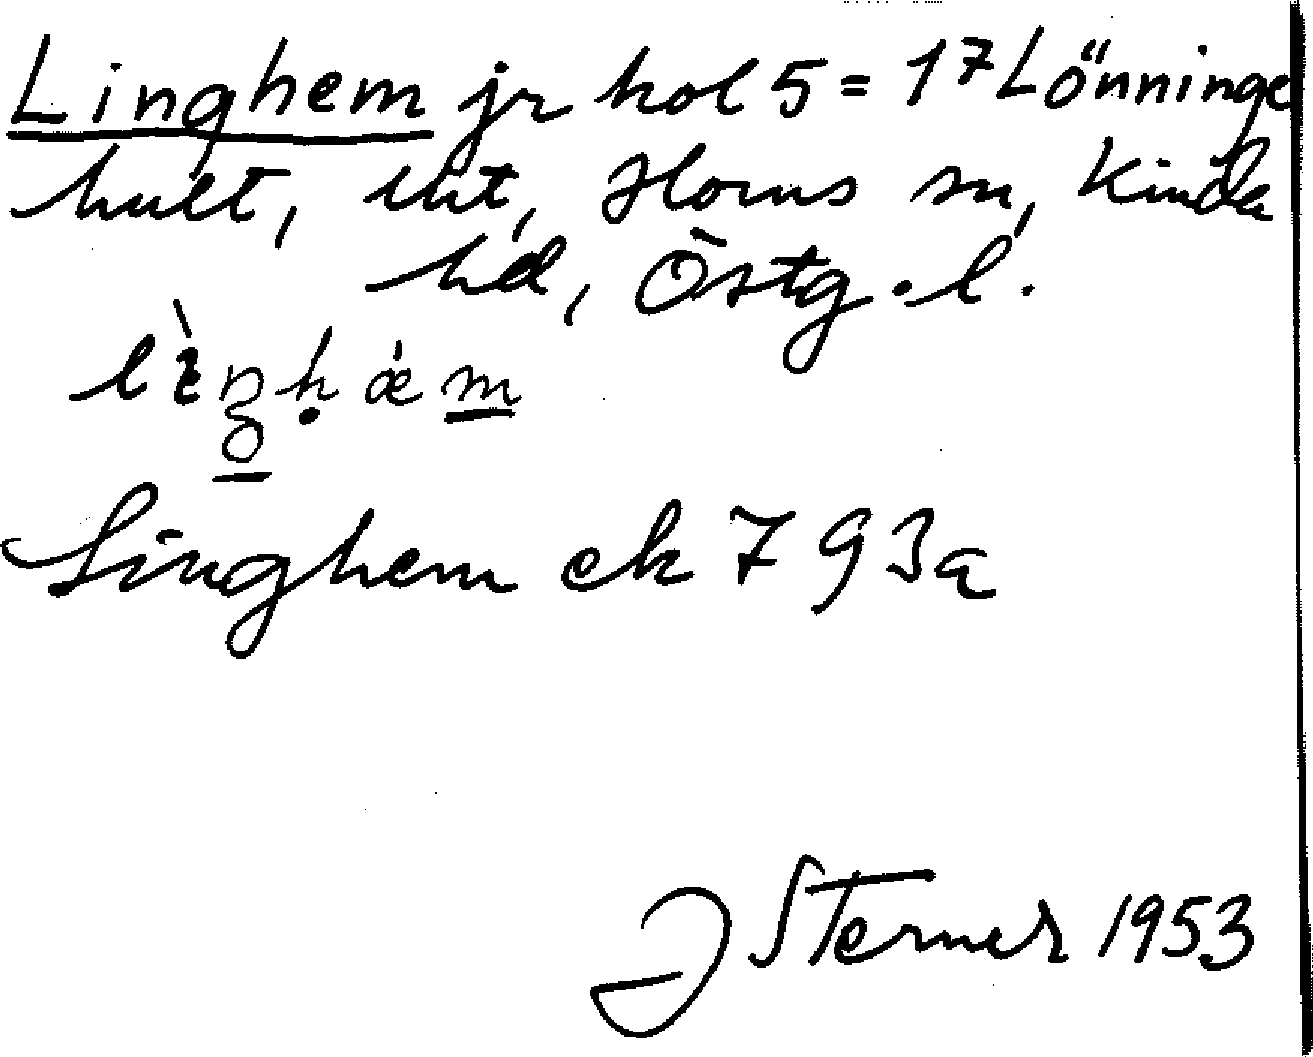 Linghem jr kol 5 = 1⁷ Lönninge
hult, uht, Horns sn, Kinda
hd, Östg. l.
Linghem ek 793a
J Sterner 1953